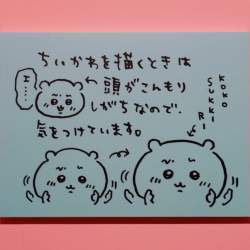 ちいかわを描くときは
頭がこんもり
しがちなので、
気をつけています。
え……
KOKO
SUKKIRI